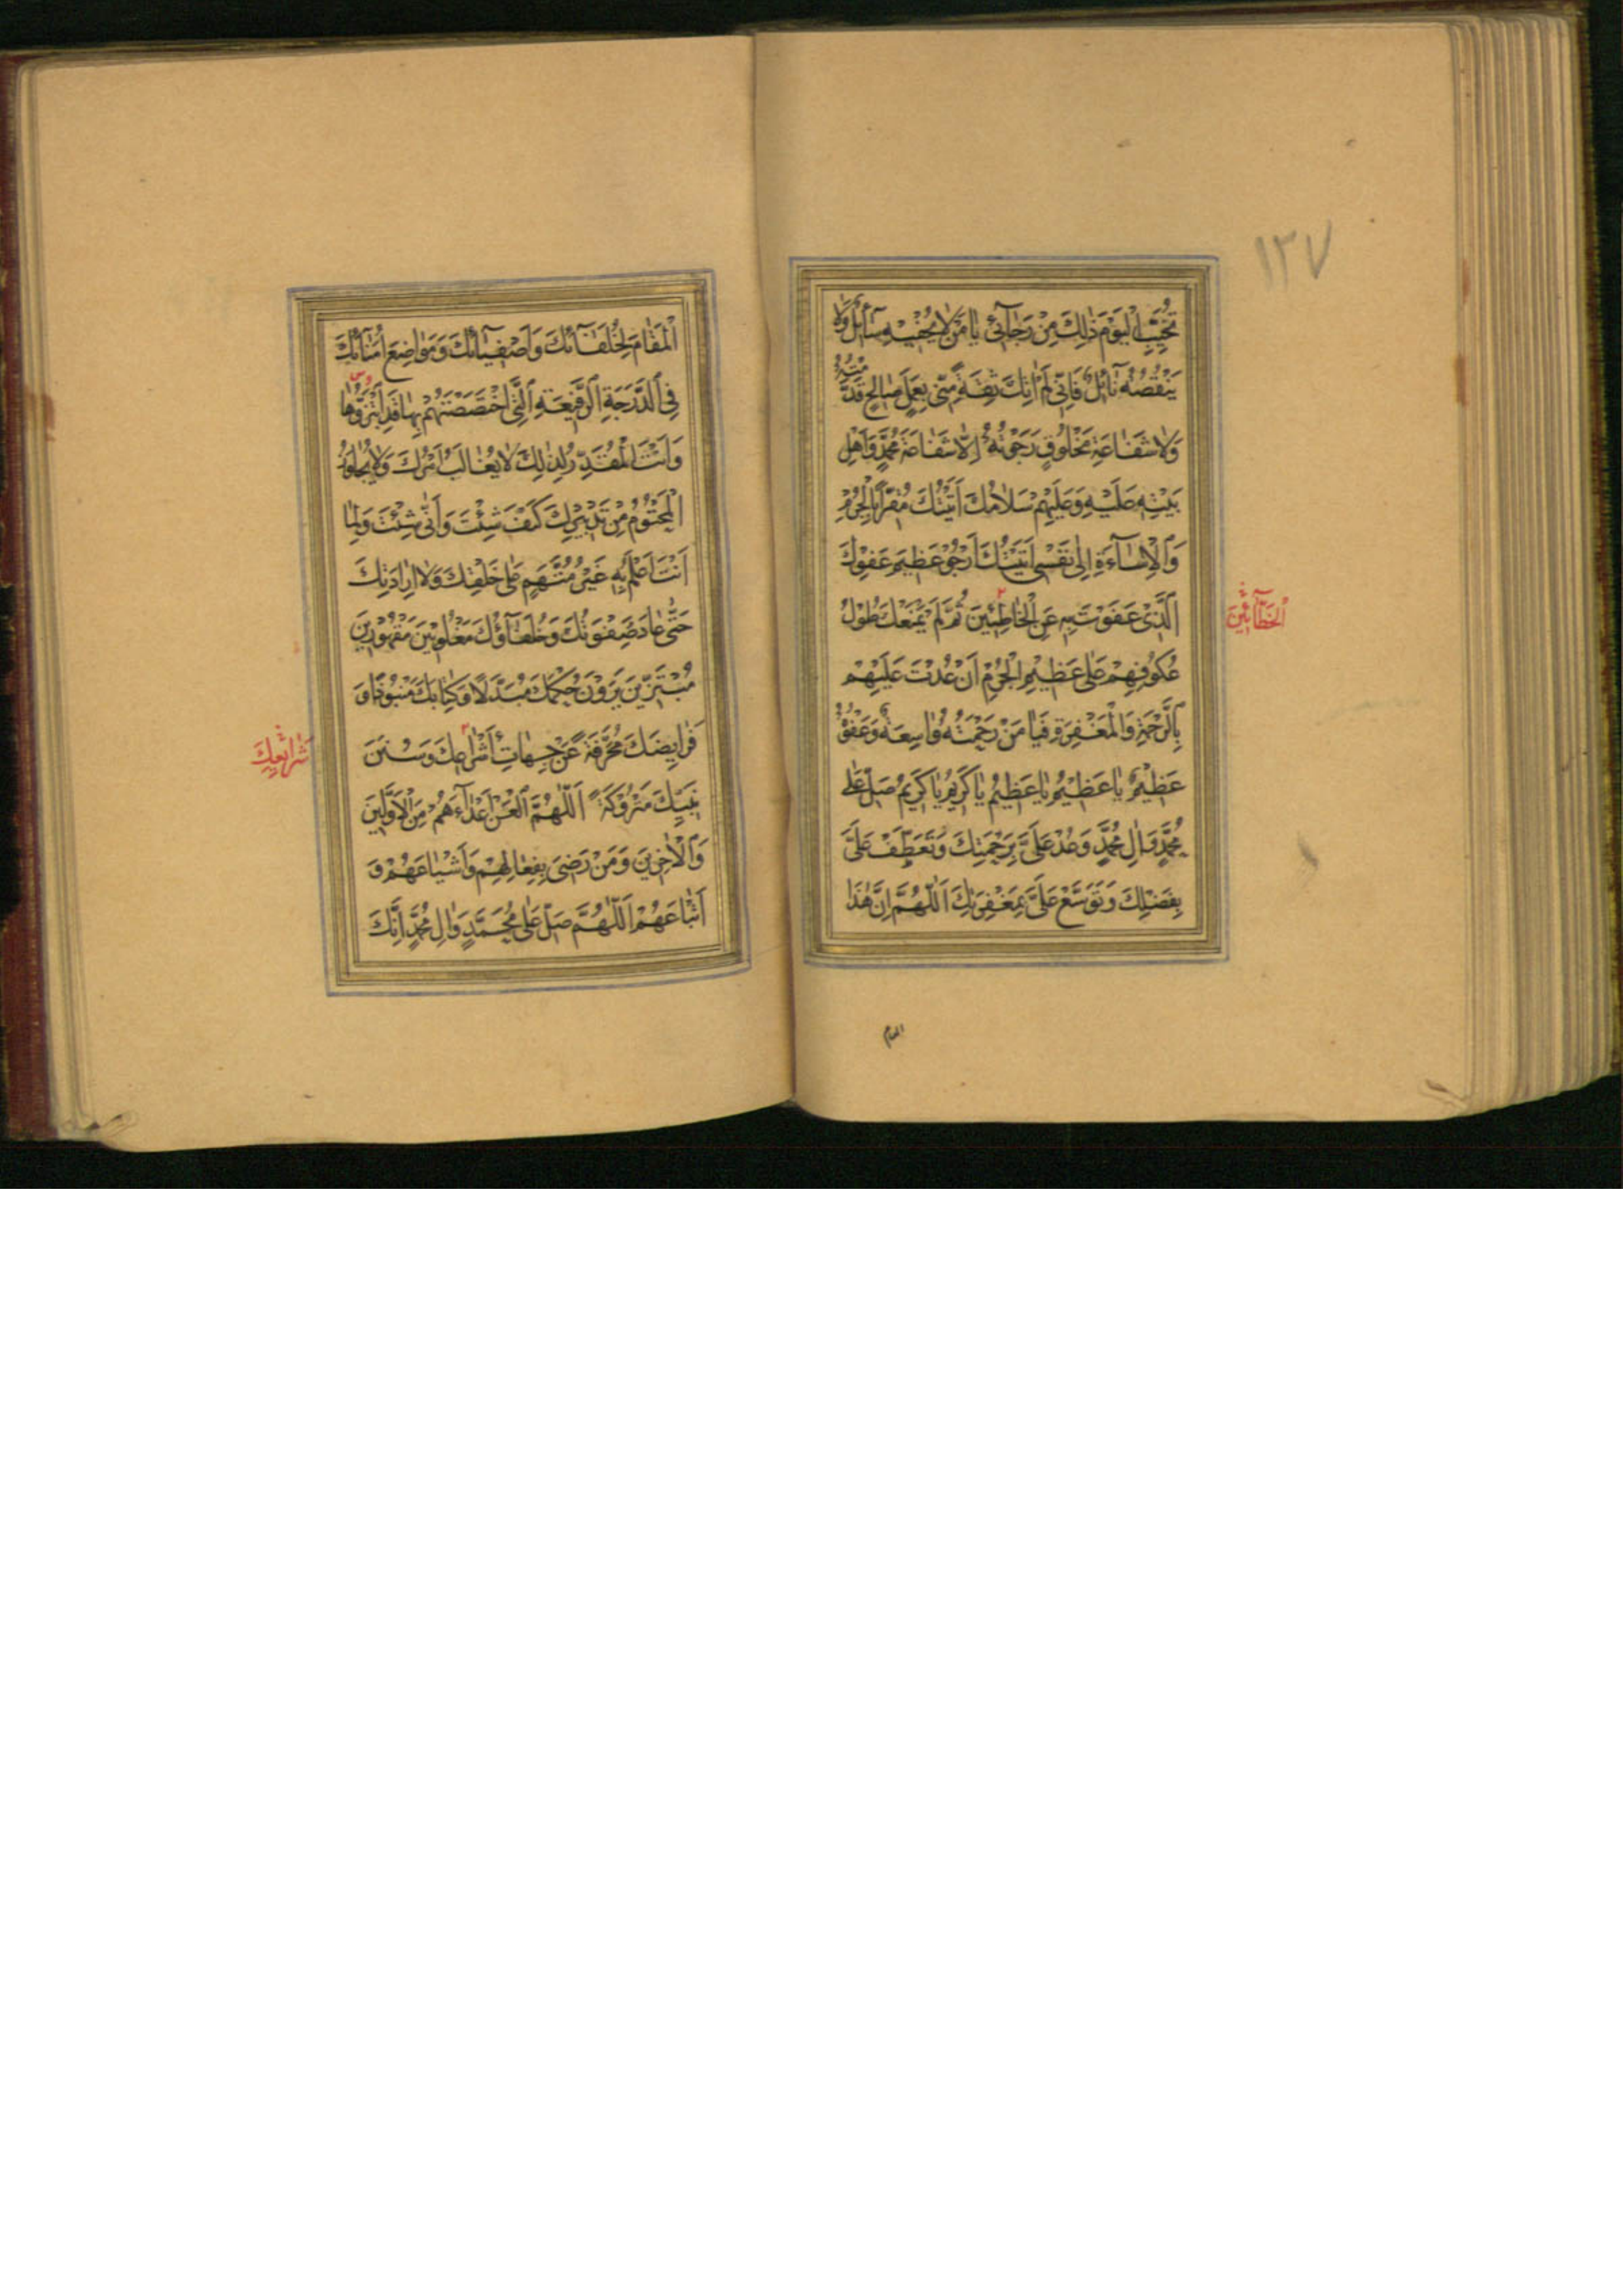 ١٢٧
تُخَيِّبِ الْيَوْمَ ذٰلِكَ مِنْ رَجَآئِي يَا مَنْ لَا يُحْفِيهِ سَآئِلٌ وَلَا
يَنْقُصُهُ نَآئِلٌ فَاِنِّي لَمْ اٰتِكَ ثِقَةً مِنِّي بِعَمَلٍ صَالِحٍ قَدَّمْتُهُ
وَلَا شَفَاعَةِ مَخْلُوقٍ رَجَوْتُهُ اِلَّا شَفَاعَةَ مُحَمَّدٍ وَاَهْلِ
بَيْتِهِ عَلَيْهِ وَعَلَيْهِمْ سَلَامُكَ اَتَيْتُكَ مُقِرًّا بِالْجُرْمِ
وَالْاِسَآءَةِ اِلٰى نَفْسِي اَتَيْتُكَ اَرْجُو عَظِيمَ عَفْوِكَ
الَّذِي عَفَوْتَ بِهِ عَنِ الْخَاطِئِينَ ثُمَّ لَمْ يَمْنَعْكَ طُولُ
الْخَطَّآئِينَ
عُكُوفِهِمْ عَلٰى عَظِيمِ الْجُرْمِ اَنْ عُدْتَ عَلَيْهِمْ
بِالرَّحْمَةِ وَالْمَغْفِرَةِ فَيَا مَنْ رَحْمَتُهُ وَاسِعَةٌ وَعَفْوُهُ
عَظِيمٌ يَا عَظِيمُ يَا عَظِيمُ يَا كَرِيمُ يَا كَرِيمُ صَلِّ عَلٰى
مُحَمَّدٍ وَاٰلِ مُحَمَّدٍ وَعُدْ عَلَيَّ بِرَحْمَتِكَ وَتَعَطَّفْ عَلَيَّ
بِفَضْلِكَ وَتَوَسَّعْ عَلَيَّ بِمَغْفِرَتِكَ اَللّٰهُمَّ اِنَّ هٰذَا
المقام
الْمَقَامَ لِخُلَفَآئِكَ وَاَصْفِيَآئِكَ وَمَوَاضِعَ اُمَنَآئِكَ
فِي الدَّرَجَةِ الرَّفِيعَةِ الَّتِي اخْتَصَصْتَهُمْ بِهَا قَدِ ابْتَزُّوهَا
وَاَنْتَ الْمُقَدِّرُ لِذٰلِكَ لَا يُغَالَبُ اَمْرُكَ وَلَا يُجَاوَزُ
الْمَحْتُومُ مِنْ تَدْبِيرِكَ كَيْفَ شِئْتَ وَاَنّٰى شِئْتَ وَلِمَا
اَنْتَ اَعْلَمُ بِهِ غَيْرُ مُتَّهَمٍ عَلٰى خَلْقِكَ وَلَا اِرَادَتِكَ
حَتّٰى عَادَ صَفْوَتُكَ وَخُلَفَآؤُكَ مَغْلُوبِينَ مَقْهُورِينَ
مُبْتَزِّينَ يَرَوْنَ حُكْمَكَ مُبَدَّلًا وَكِتَابَكَ مَنْبُوذًا وَ
فَرَايِضَكَ مُحَرَّفَةً عَنْ جِهَاتِ اَشْرَاعِكَ وَسُنَنَ
شَرَايِعِكَ
نَبِيِّكَ مَتْرُوكَةً اَللّٰهُمَّ الْعَنْ اَعْدَآءَهُمْ مِنَ الْاَوَّلِينَ
وَالْاٰخِرِينَ وَمَنْ رَضِيَ بِفِعَالِهِمْ وَاَشْيَاعَهُمْ وَ
اَتْبَاعَهُمْ اَللّٰهُمَّ صَلِّ عَلٰى مُحَمَّدٍ وَاٰلِ مُحَمَّدٍ اِنَّكَ